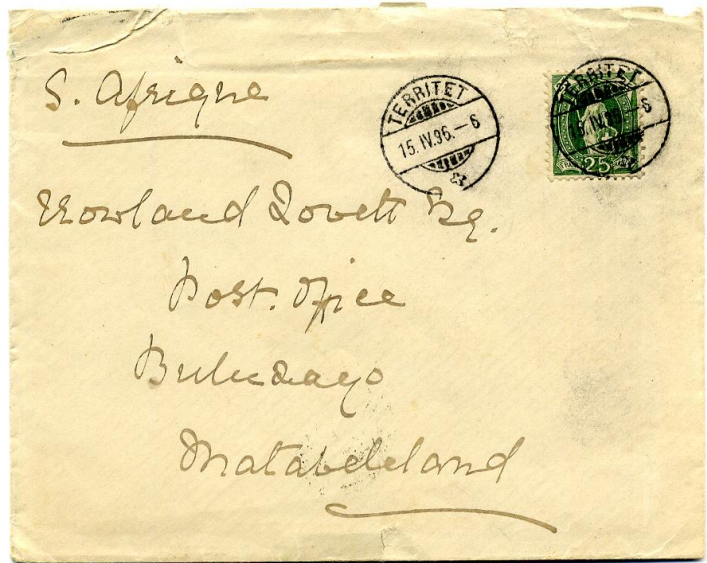 S. Afrique
TERRITET
15.IV.96.–6
TERRITET
25
Rowland Lovett Esq.
Post. Office
Buluwayo
Matabeleland